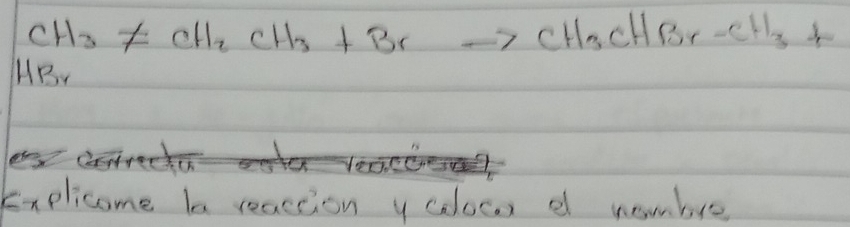 CH3 ≠ CH2 CH3 + Br → CH3CHBr-CH3 +
HBr
es correcta esta reacción?
Explicame la reaccion y colocar el nombre